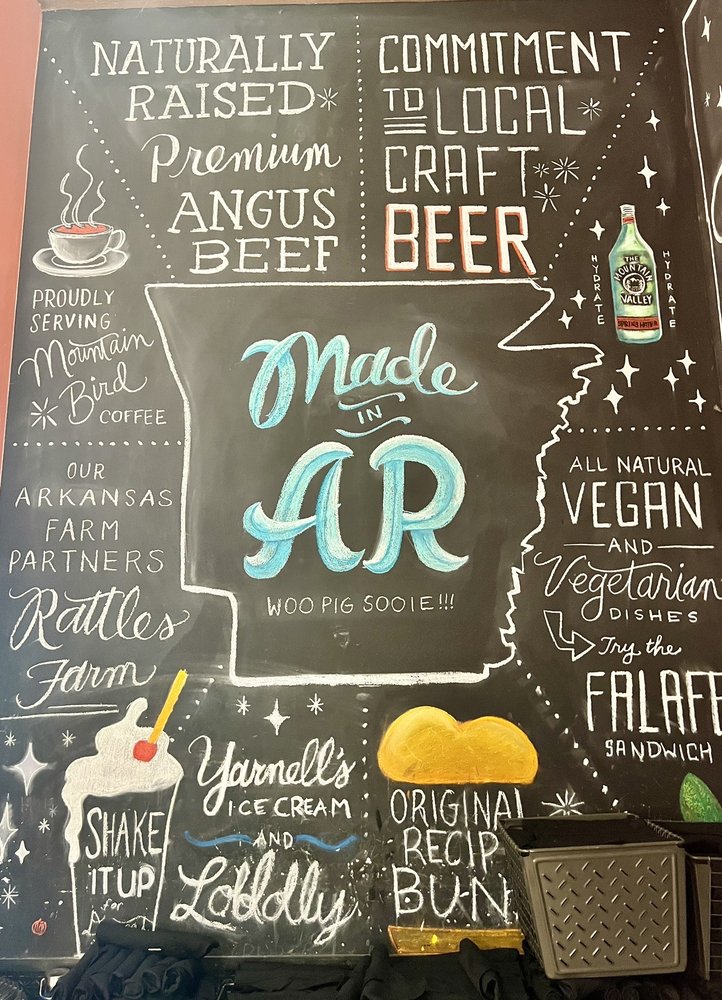 NATURALLY
RAISED
Premium
ANGUS
BEEF
COMMITMENT
TO LOCAL
CRAFT
BEER
PROUDLY
SERVING
Mountain
Bird
COFFEE
HYDRATE
THE
MOUNTAIN
VALLEY
SPRING WATER
HYDRATE
Made
IN
AR
WOO PIG SOOIE!!!
OUR
ARKANSAS
FARM
PARTNERS
Rattles
Farm
ALL NATURAL
VEGAN
AND
Vegetarian
DISHES
Try the
FALAFE
SANDWICH
SHAKE
IT UP
for
Yarnell's
ICE CREAM
AND
Loblolly
ORIGINAL
RECIP
BUN